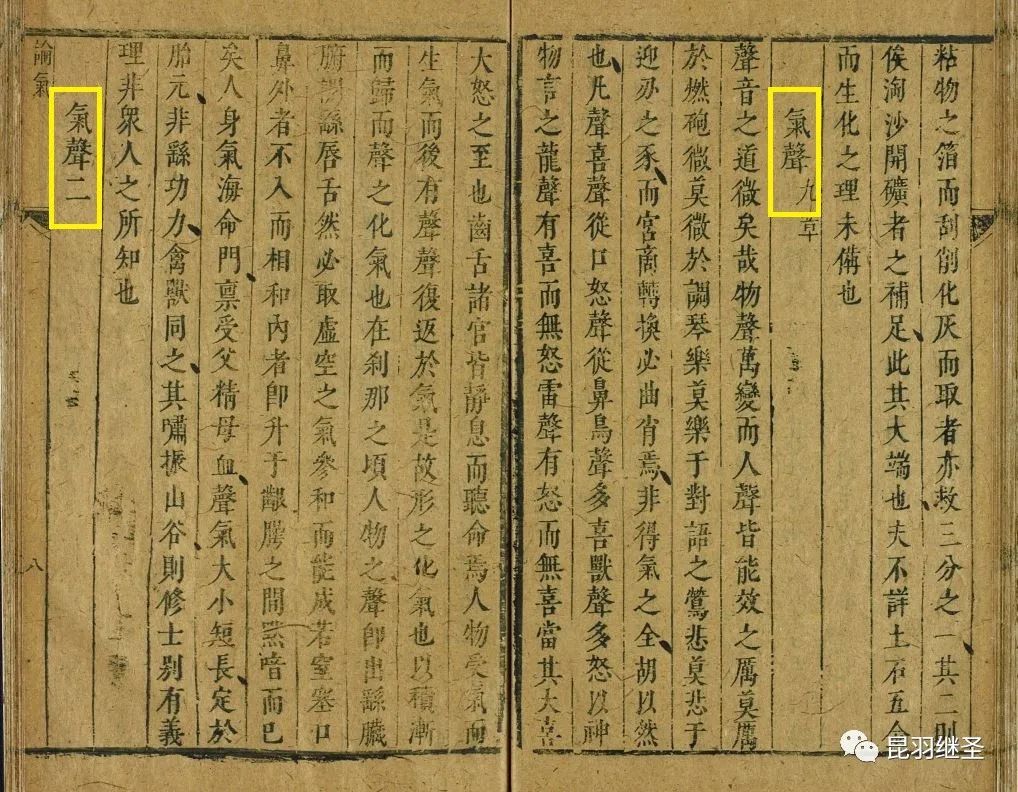 粘物之箔而刮削化灰而取者亦救三分之一其二則
俟淘沙開礦者之補足此其大端也夫不詳土石五金
而生化之理未備也
氣聲九章
聲音之道微矣哉物聲萬變而人聲皆能效之厲莫厲
於燃砲微莫微於調琴樂莫樂于對語之鶯悲莫悲于
迎刅之豕而宮商轉換必曲肖焉非得氣之全胡以然
也凡聲喜聲從口怒聲從鼻鳥聲多喜獸聲多怒以神
物言之龍聲有喜而無怒雷聲有怒而無喜當其大喜
大怒之至也齒舌諸官皆靜息而聽命焉人物受氣而
生氣而後有聲聲復返於氣是故形之化氣也以積漸
而歸而聲之化氣也在刹那之頃人物之聲卽出繇臟
腑調繇唇舌然必取虛空之氣參和而能成若窒塞口
鼻外者不入而相和內者卽升于齦腭之間黙喑而已
矣人身氣海命門稟受父精母血聲氣大小短長定於
胎元非繇功力禽獸同之其嘯振山谷則修士別有義
理非衆人之所知也
氣聲二
論氣
八
昆羽继圣